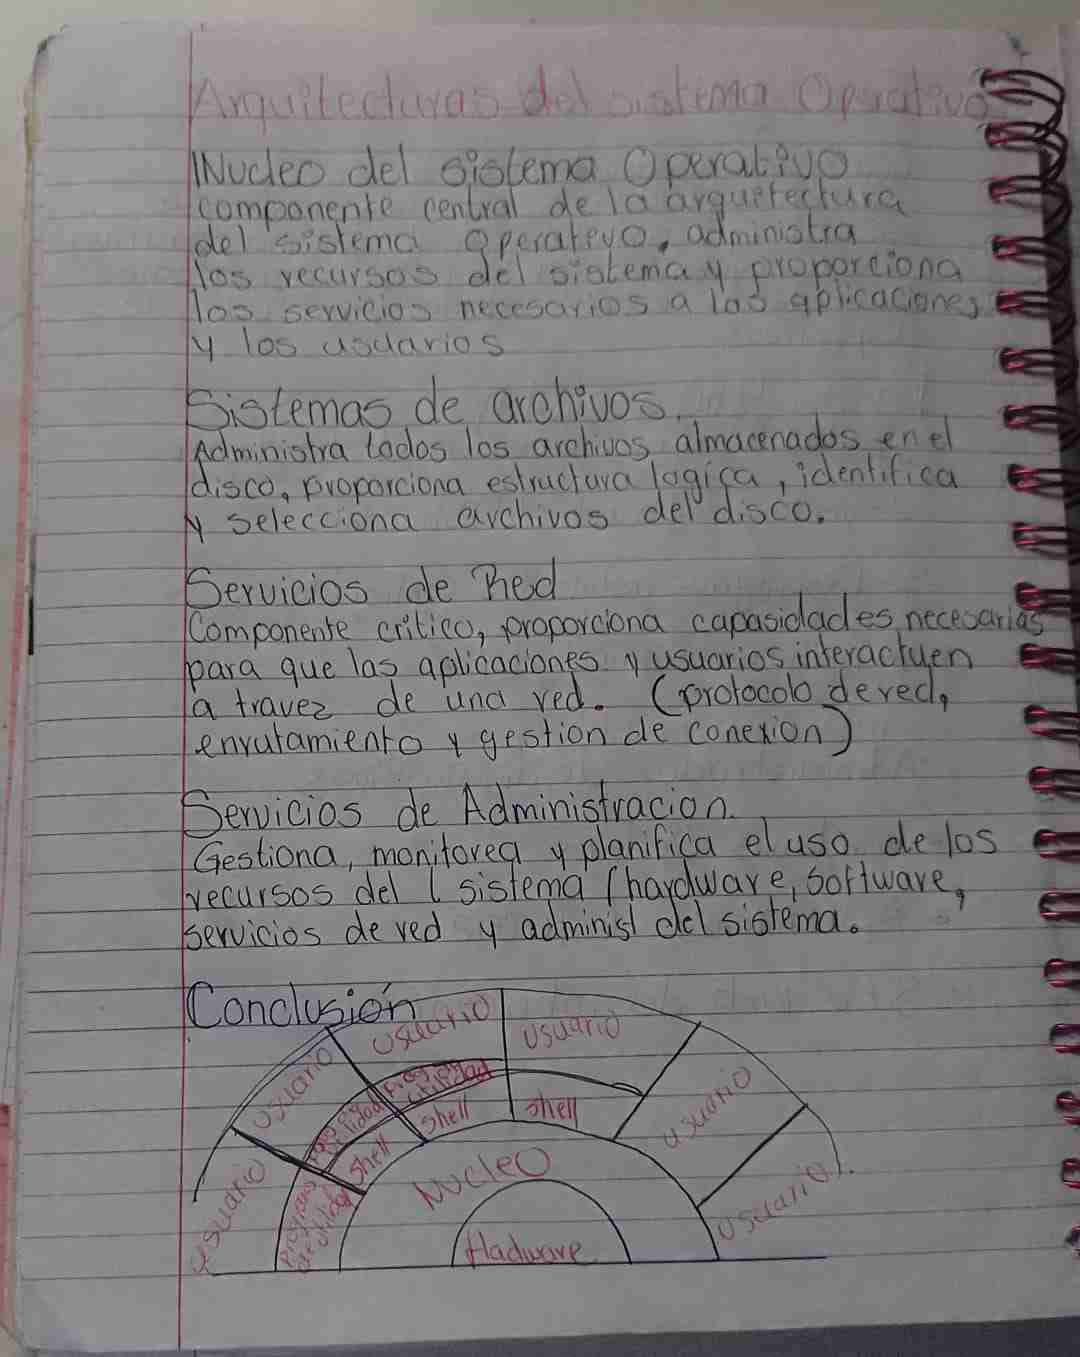 Arquitecturas del sistema Operativo
Nucleo del sistema Operativo
componente central de la arquitectura
del sistema operativo, administra
los recursos del sistema y proporciona
los servicios necesarios a las aplicaciones
y los usuarios
Sistemas de archivos.
Administra todos los archivos almacenados en el
disco, proporciona estructura logica, identifica
y selecciona archivos del disco.
Servicios de Red
Componente critico, proporciona capasidades necesarias
para que las aplicaciones y usuarios interactuen
a travez de una red. (protocolo de red,
enrutamiento y gestion de conexion)
Servicios de Administracion.
Gestiona, monitorea y planifica el uso de los
recursos del ( sistema (hardware, software,
servicios de red y administ del sistema.
Conclusión
usuario
usuario
usuario
usuario
usuario
usuario
prog
utilidad
utilidad
programas
de utilidad
shell
shell
shell
Nucleo
Hadware